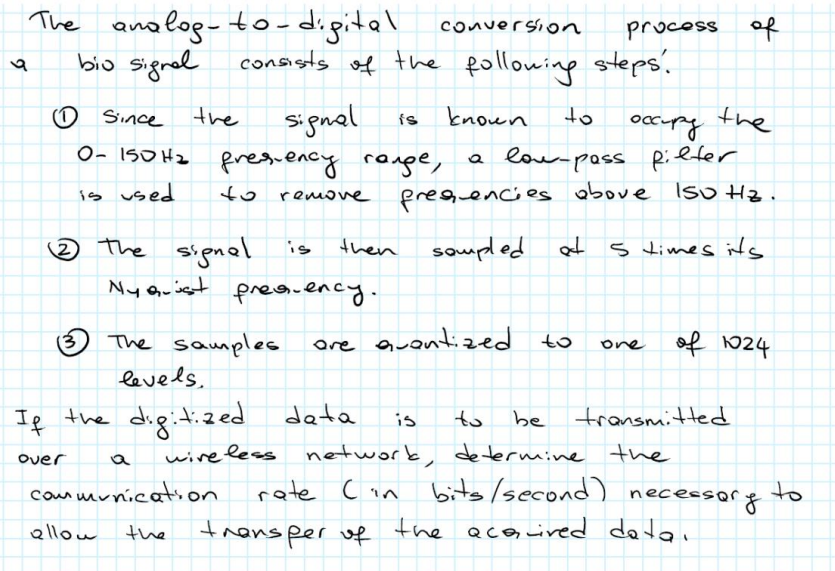 The analog-to-digital conversion process of
a bio signal consists of the following steps:
① Since the signal is known to occupy the
0-150Hz frequency range, a low-pass filter
is used to remove frequencies above 150 Hz.
② The signal is then sampled at 5 times its
Nyquist frequency.
③ The samples are quantized to one of 1024
levels.
If the digitized data is to be transmitted
over a wireless network, determine the
communication rate (in bits/second) necessary to
allow the transfer of the acquired data.